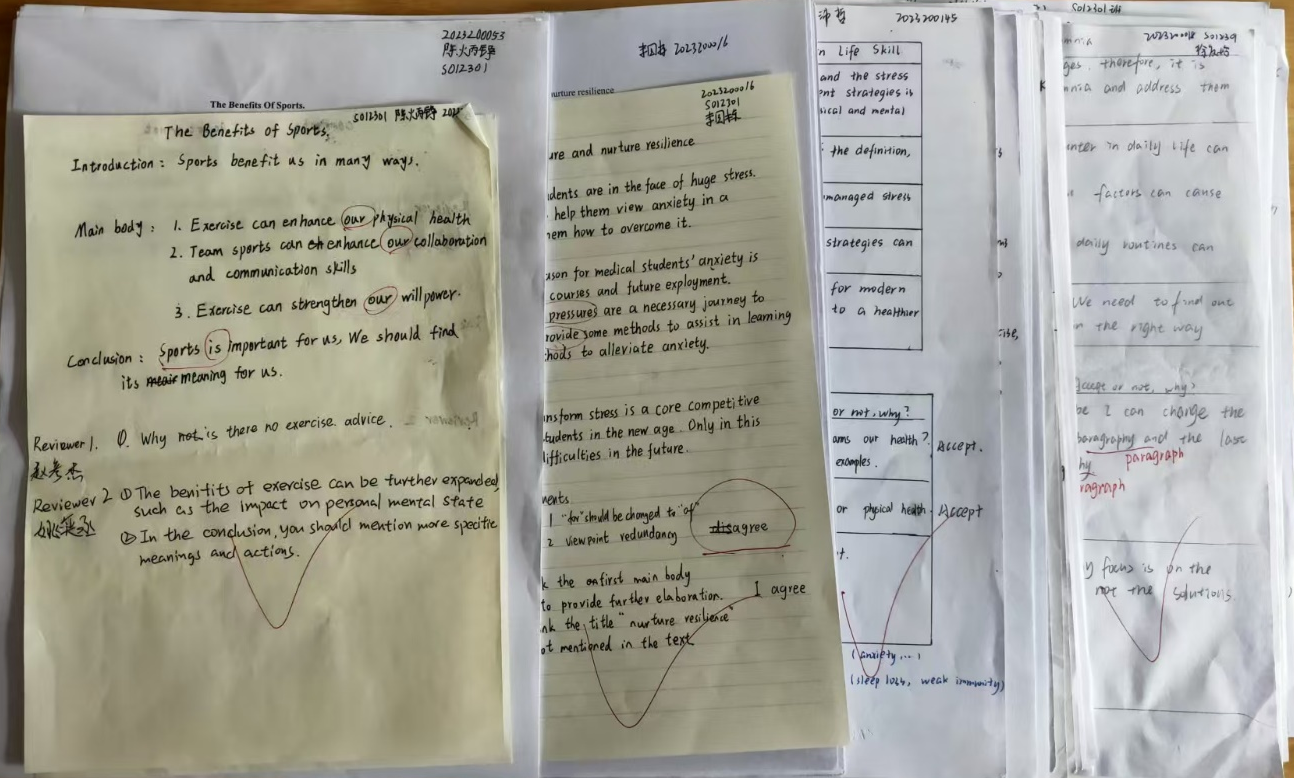 2023200053
S012301
The Benefits Of Sports.
S012301
The Benefits of Sports.
Introduction : Sports benefit us in many ways.
Main body : 1. Exercise can enhance our physical health
2. Team sports can enhance our collaboration
and communication skills
3. Exercise can strengthen our willpower.
Conclusion : Sports is important for us, We should find
its meaning for us.
Reviewer 1. ①. Why not is there no exercise advice.
Reviewer 2 ① The benifits of exercise can be further expanded,
such as the impact on personal mental state
② In the conclusion, you should mention more specific
meanings and actions.
2023200016
nurture resilience
2023200016
S012301
ure and nurture resilience
dents are in the face of huge stress.
help them view anxiety in a
em how to overcome it.
ason for medical students' anxiety is
courses and future exployment.
pressures are a necessary journey to
rovide some methods to assist in learning
hods to alleviate anxiety.
ansform stress is a core competitive
tudents in the new age. Only in this
ifficulties in the future.
ments
1 "for" should be changed to "of"
2 viewpoint redundancy
agree
k the first main body
to provide further elaboration. I agree
nk the title "nurture resilience"
ot mentioned in the text
2023200145
n Life Skill
and the stress
ent strategies is
sical and mental
the definition,
managed stress
strategies can
for modern
to a healthier
or not, why?
ams our health? Accept.
examples.
or physical health Accept
(anxiety...)
(sleep loss, weak immunity)
S012301
mnia
ges. therefore, it is
mnia and address them
unter in daily life can
factors can cause
daily routines can
We need to find out
in the right way
accept or not, why?
be I can change the
paragraphy and the last
hy paragraph
ragraph
y focus is on the
not the solutions.